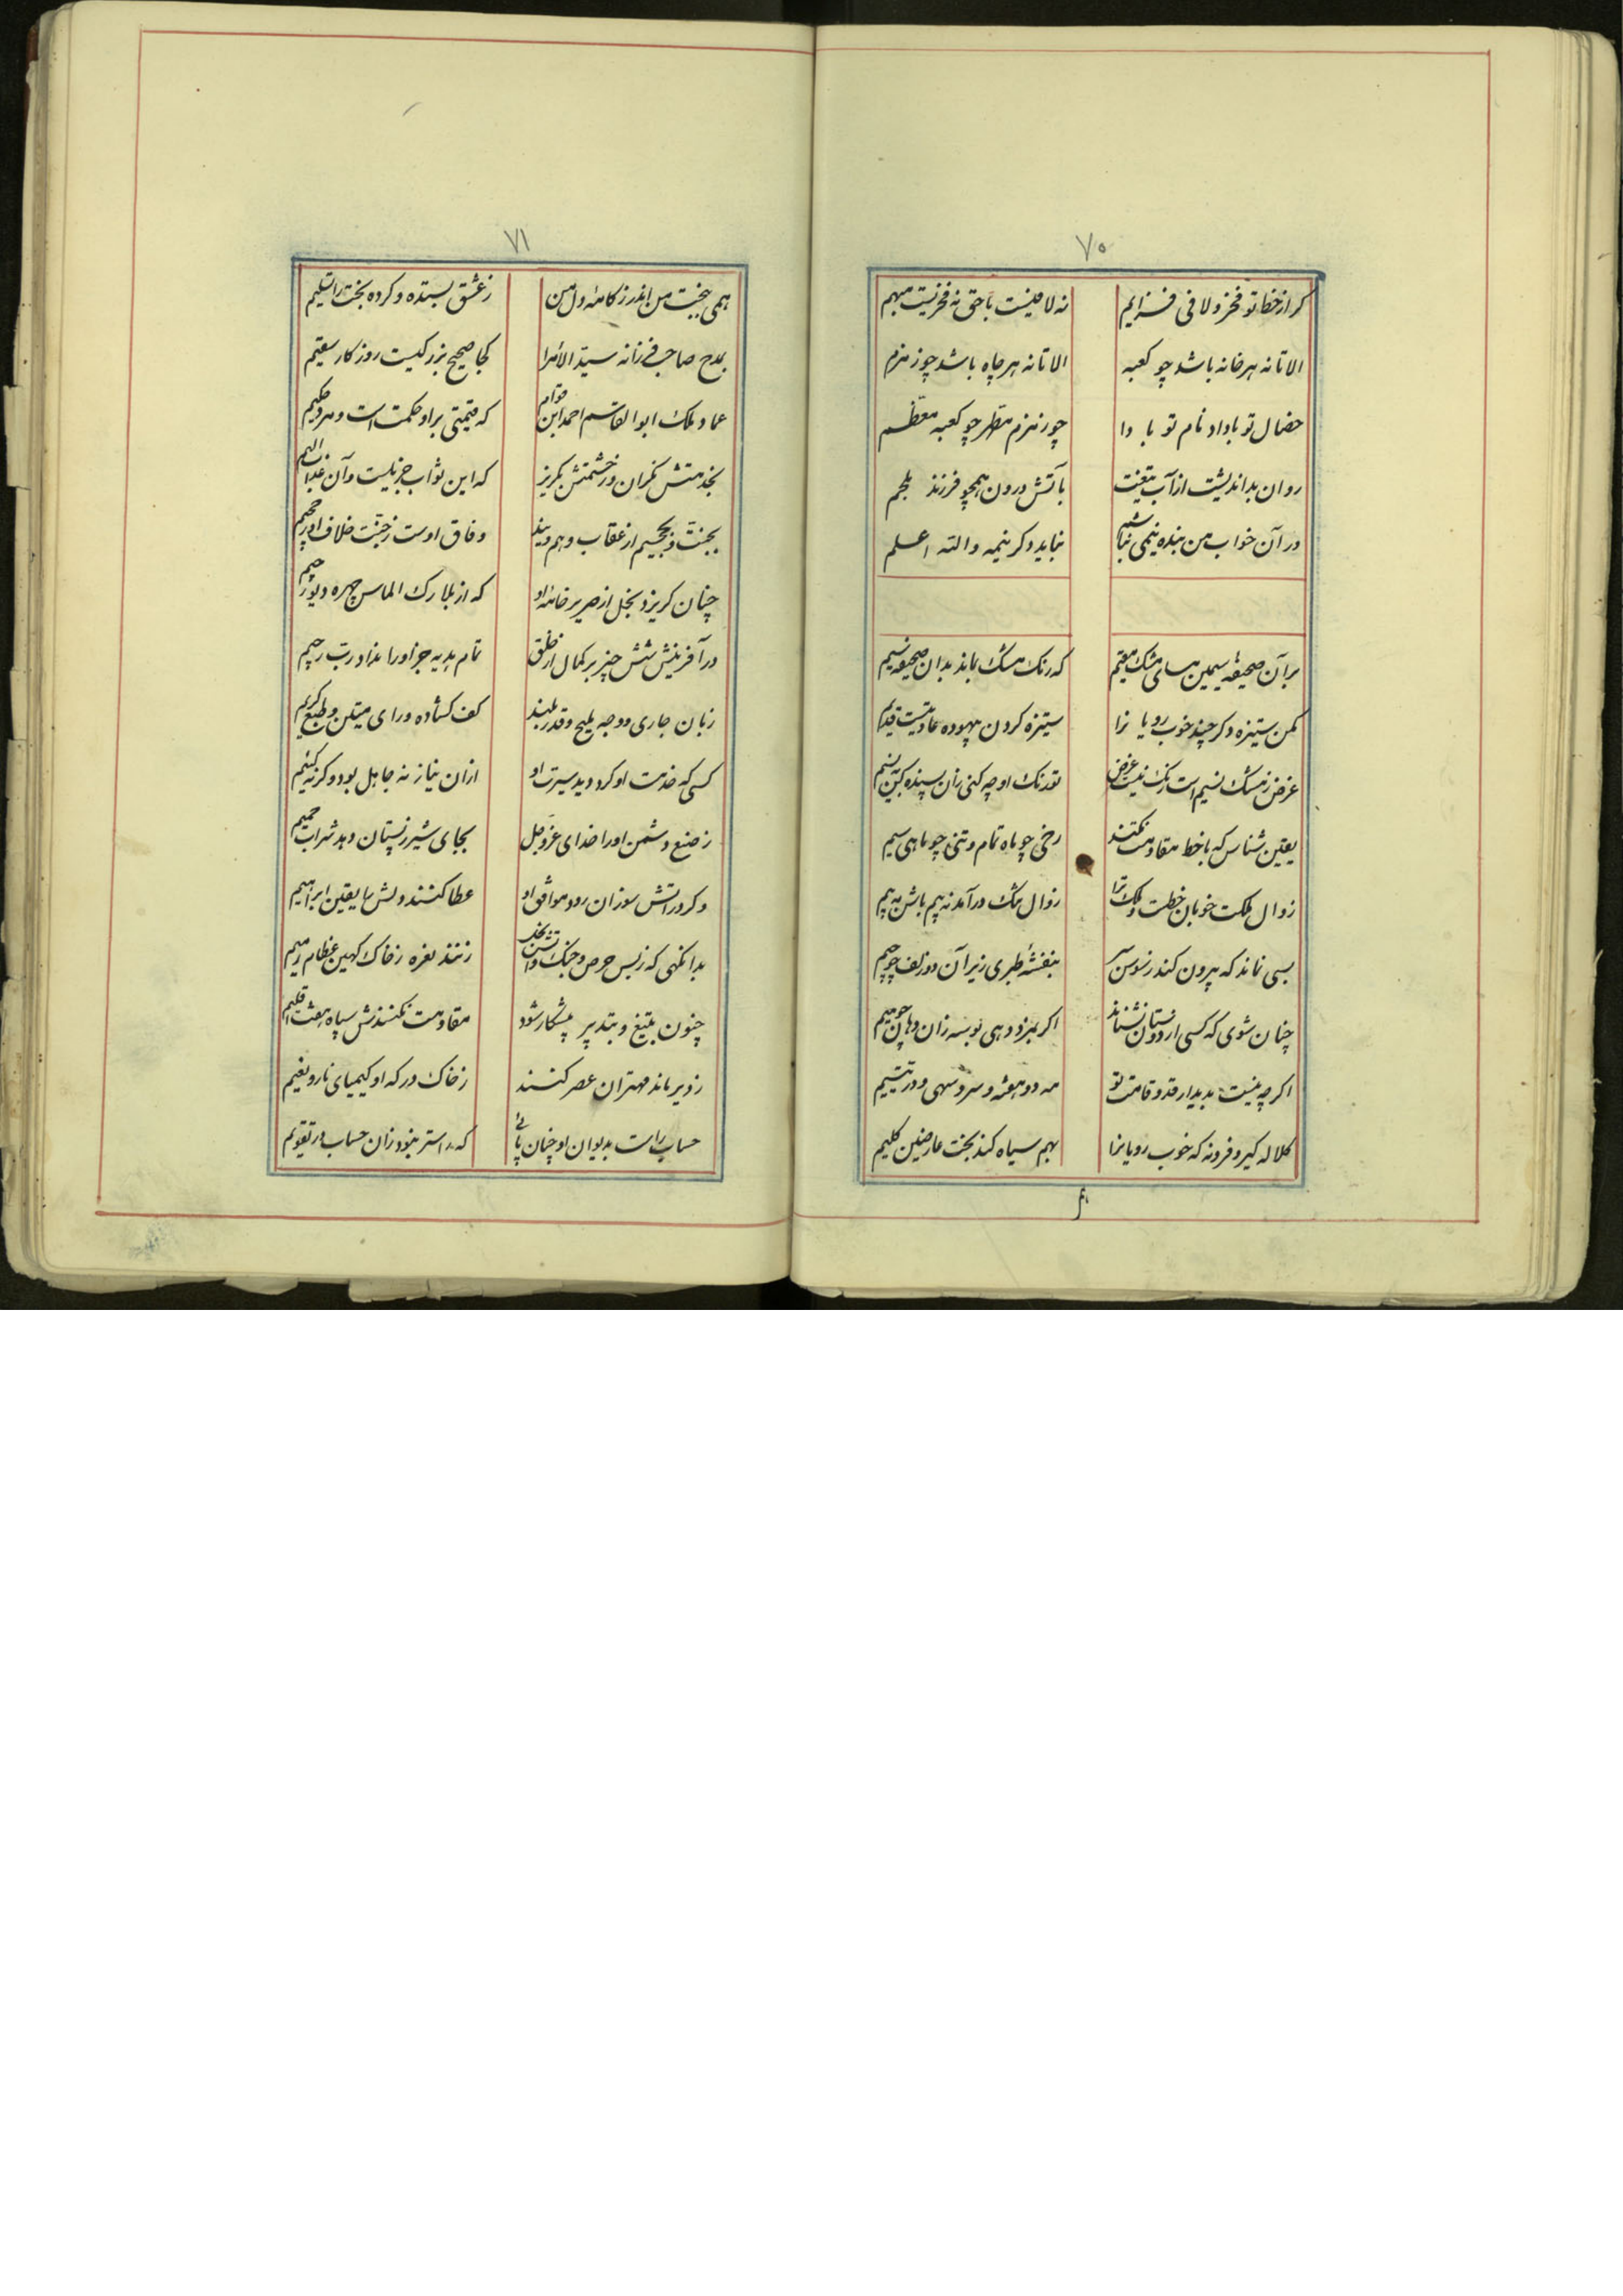 ٧٥
کر از خطا تو فخر و لافی فزایم نه لافیست باحق نه فخریست مبهم
الا تا نه هر خانه باشد چو کعبه الا تا نه هر چاه باشد چو زمزم
خصال تو باداد نام تو با دا چو زمزم مطهر چو کعبه معظم
روان بداندیشت از آب تیغت بآتش درون همچو فرزند ملجم
در آن خواب من بنده نیمی نباشم نباید دکر نیمه والله اعلم
بر آن صحیفه سیمین مسای مشک مقیم که رنک مشک بماند بدان صحیفه سیم
مکن ستیزه و کر چند خوب رویا نرا ستیزه کردن بیهوده عادتیست قدیم
غرض ز مشک نسیم است رنک نیست غرض تو رنک او چه کنی زان بسنده کن بنسیم
یقین شناس که با خط مقاومت نکنند رخی چو ماه تمام و تنی چو ماهی سیم
زوال ملکت خوبان خطست و ملک ترا زوال تنک درآمد نه بیم باش نه بیم
بسی نماند که بیرون کند ز سوسن سر بنفشه طبری زیر آن دو زلف چو جیم
چنان شوی که کسی از دوستان نشناسد اکر بمزد دهی بوسه زان دهان چو میم
اکر چه نیست بدیدار قد و قامت تو مه دو هفته و سرو سهی و در یتیم
کلاله کیر و فرو نه که خوب رویانرا بهم سیاه کند بخت عارضین کلیم
٧١
همی بجنبت من اندرز کامه دل من ز عشق بستده و کرده بخت را تسلیم
بمدح صاحب فرزانه سید الامرا کجا صحیح بزرکیست روزکار سقیم
عماد ملک ابوالقاسم احمد ابن قوام که قیمتی بر او حکمت است و مرد حکیم
بخدمتش نکران و ز خشمتش بکریز که این ثواب جزیلست و آن عذاب الیم
بجنت و بجحیم از عقاب و هم دیند وفاق اوست ز جنت خلاف او ز جحیم
چنان کریزد بخل از صریر خامه او که از بلارک الماس چهره دیو رجیم
در آفرینش شش چیز بر کمال از خلق تمام هدیه جز او را نداد رب رحیم
زبان جاری و وجه ملیح و قدر بلند کف کشاده و رای متین و طبع کریم
کسی که خدمت او کرد و دید سیرت او از ان نیاز نه جاهل بود و کرنه کنیم
ز صنع دشمن او را خدای عز و جل بجای شیر ز پستان دهد شراب حمیم
و کر در آتش سوزان رود موافق او عطا کنند دلش را یقین ابراهیم
بدانکهی که ز بس حرص و جنک و آتش بخل زنند نعره ز خاک کهین عظام رمیم
چنون بتیغ و بتدبیر پیشکار شود مقاومت نکنندش سپاه هفت اقلیم
زد یر ماند مهتران عصر کنند ز خاک درکه او کیمیای ناز و نعیم
حساب راست بدیوان او چنان یابی که راستر نبود زان حساب در تقویم